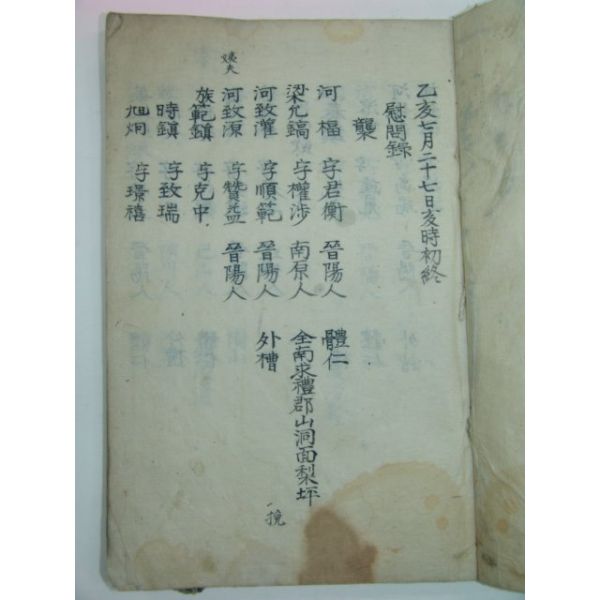 乙亥七月二十七日亥時初終
慰問錄
襲
河楅 字君衡 晉陽人 體仁
梁允鎬 字權涉 南原人 全南求禮郡山洞面梨坪 一挽
河致灌 字順範 晉陽人 外槽
河致源 字贊益 晉陽人
族範鎮 字克中
時鎮 字致瑞
旭炯 字璟禧